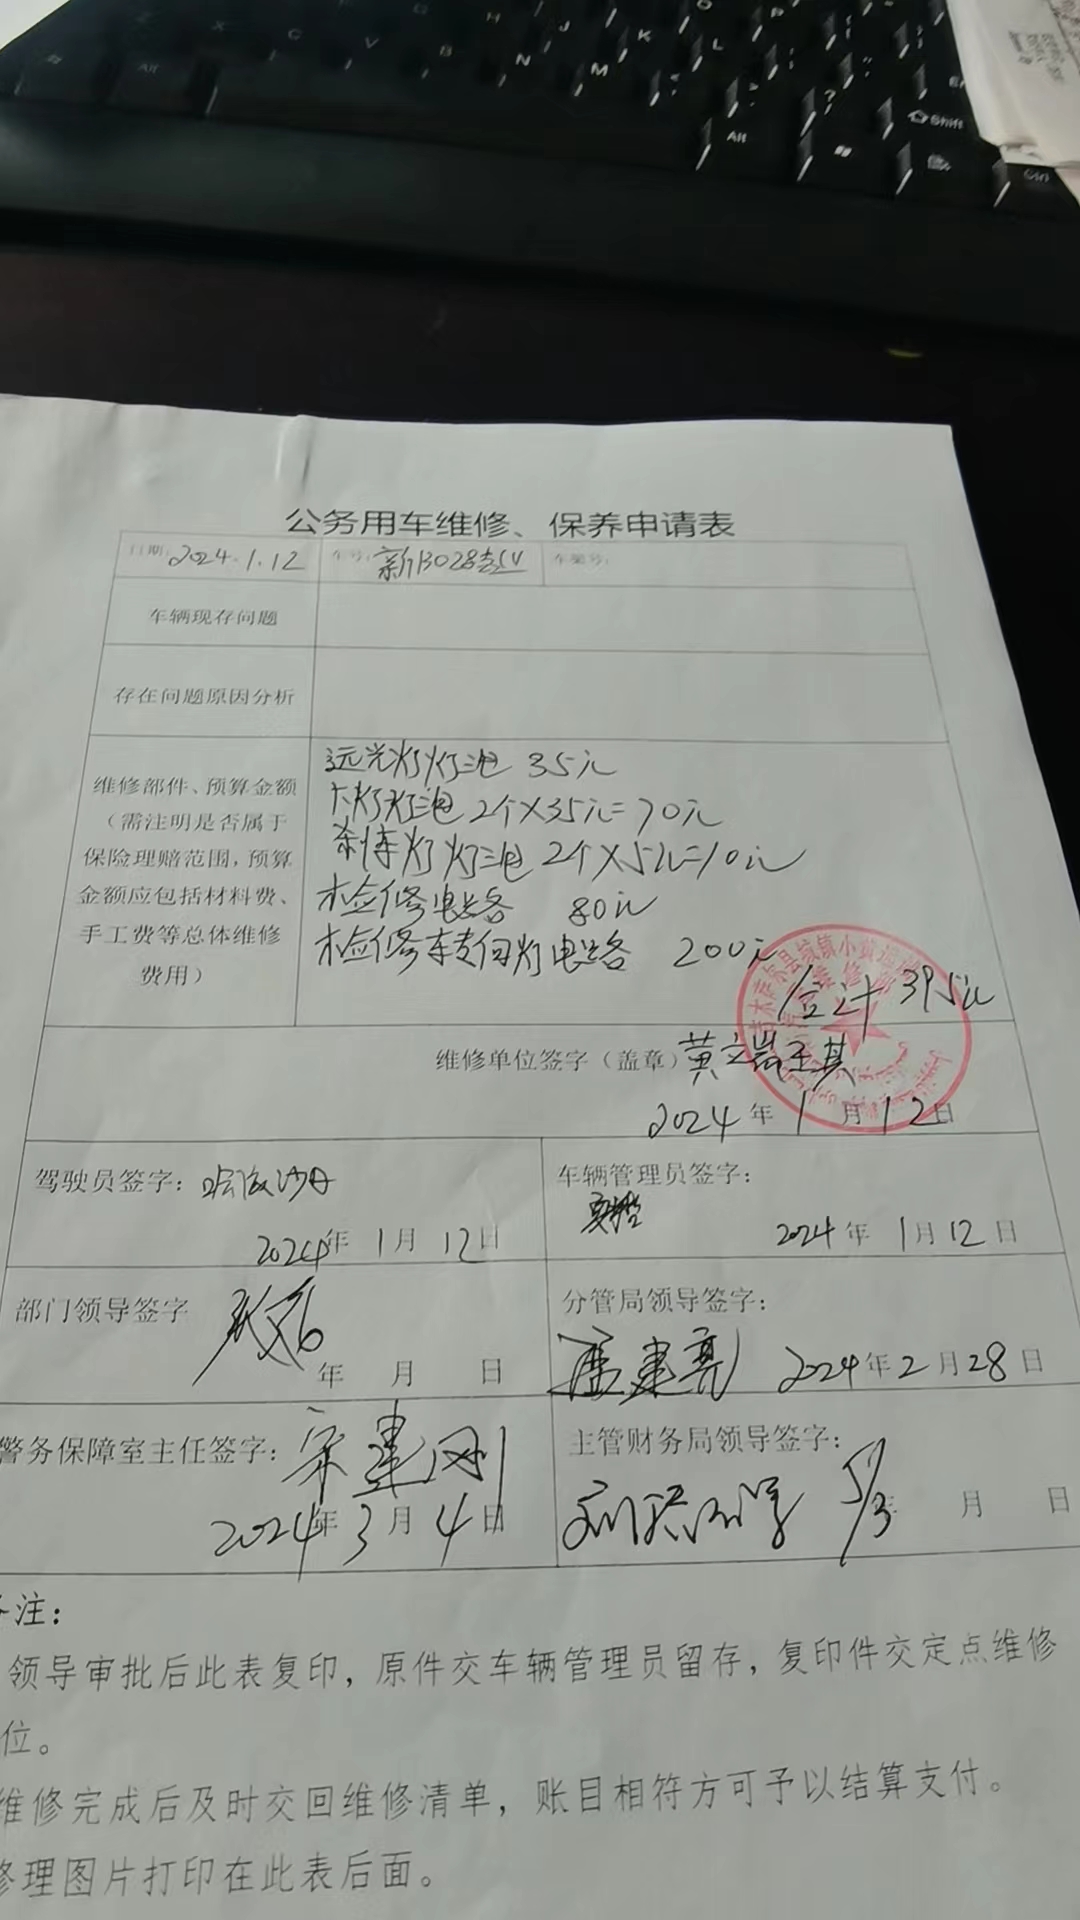 公务用车维修、保养申请表
日期: 2024.1.12 车号: 新B028 车架号:
车辆现存问题
存在问题原因分析
维修部件、预算金额
(需注明是否属于
保险理赔范围,预算
金额应包括材料费、
手工费等总体维修
费用)
远光灯灯泡 35元
大灯灯泡 2个×35元=70元
刹车灯灯泡 2个×5元=10元
检修电路 80元
检修转向灯电路 200元
合计 395元
维修单位签字(盖章)
2024年1月12日
驾驶员签字:
2024年1月12日
车辆管理员签字:
2024年1月12日
部门领导签字
年 月 日
分管局领导签字:
2024年2月28日
警务保障室主任签字: 宋建刚
2024年3月4日
主管财务局领导签字:
5/3 年 月 日
备注:
领导审批后此表复印,原件交车辆管理员留存,复印件交定点维修
位。
维修完成后及时交回维修清单,账目相符方可予以结算支付。
修理图片打印在此表后面。